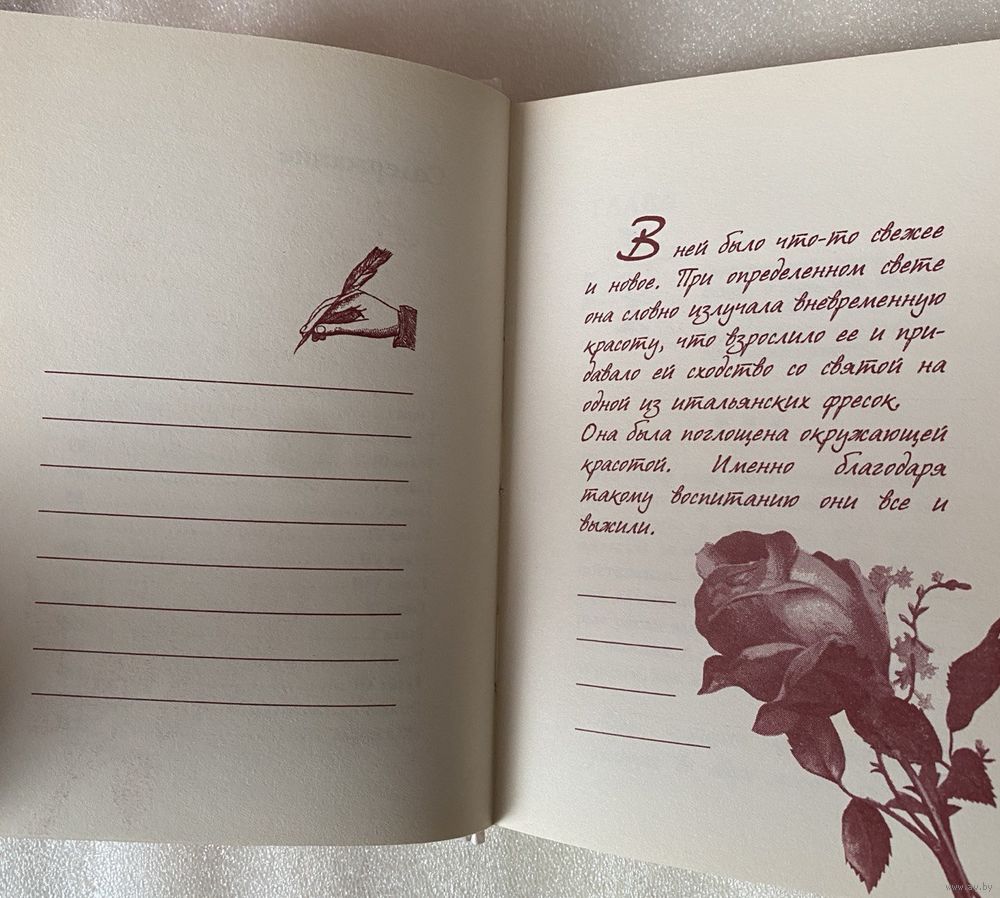 В ней было что-то свежее
и новое. При определенном свете
она словно излучала вневременную
красоту, что взрослило ее и при-
давало ей сходство со святой на
одной из итальянских фресок.
Она была поглощена окружающей
красотой. Именно благодаря
такому воспитанию они все и
выжили.
www.ay.by